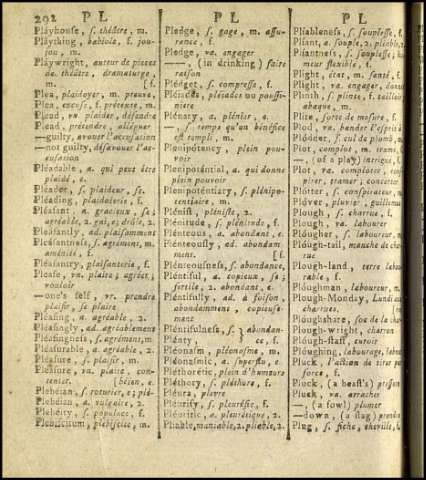 202 P L
Pláyhouse, s. théâtre, m.
Pláything, babiole, f. jou-
jou, m.
Pláywright, auteur de pieces
de théâtre, dramaturge,
m. [f.
Plea, plaidoyer, m. preuve,
Plea, excuse, f. prétexte, m.
Plead, va. plaider, défendre
Plead, prétendre, alléguer
—guilty, avouer l'accusation
—not guilty, désavouer l'ac-
cusation
Pléadable, a. qui peut être
plaidé, e.
Pleader, s. plaideur, se.
Pléading, plaidoierie, f.
Pléasant, a. gracieux, se;
agréable, 2. gai, e; drôle, 2.
Pléasantly, ad. plaisamment
Pléasantness, s. agrément, m.
aménité, f.
Pléasantry, plaisanterie, f.
Please, va. plaire; agréer,
vouloir
—one's self, vr. prendre
plaisir, se plaire
Pléasing, a. agréable, 2.
Pléasingly, ad. agréablement
Pléasingness, s. agrément, m.
Pléasurable, a. agréable, 2.
Pléasure, s. plaisir, m.
Pléasure, va. plaire, con-
tenter. [béien, e.
Plebéian, s. roturier, e; plé-
Plebéian, a. vulgaire, 2.
Plebéity, s. populace, f.
Plebiscitum, plebiscite, m.
P L
Pledge, s. gage, m. assu-
rance, f.
Pledge, va. engager
——, (in drinking) faire
raison
Plédget, s. compresse, f.
Pléiades, pléiades ou poussi-
niere
Plénary, a. plénier, e.
—, s. temps qu'un bénéfice
est rempli, m.
Plenipotency, plein pou-
voir
Plenipoténtial, a. qui donne
plein pouvoir
Plenipoténtiary, s. plénipo-
tentiaire, m.
Plénist, pléniste, 2.
Plénitude, s. plénitude, f.
Plénteous, a. abondant, e.
Plénteously, ad. abondam-
ment. [f.
Plénteousness, s. abondance,
Pléntiful, a. copieux, se;
fertile, 2. abondant, e.
Pléntifully, ad. à foison,
abondamment, copieuse-
ment
Pléntifulness, s. } abondan-
Plénty } ce, f.
Pléonasm, pléonasme, m.
Pléonasmic, a. superflu, e.
Plethorétic, plein d'humeurs
Pléthory, s. pléthore, f.
Pléura, plevre
Pléurisy, s. pleurésie, f.
Pleuritic, a. pleurétique, 2.
Pliable, maniable, 2. pliable, 2.
P L
Plíableness, s. souplesse, f.
Plíant, a. souple, 2. pliable, 2.
Plíantness, s. souplesse,
meur flexible, f.
Plight, état, m. santé, f.
Plight, va. engager,
Plinth, s. plinte, f. tailloir
abaque, m.
Plite, sorte de mesure, f.
Plod, va. bander l'esprit à
Plódder, s. cul de plomb,
Plot, complot, m. trame,
—, (of a play) intrigue, f.
Plot, va. comploter,
pirer, tramer; concerter
Plótter, s. conspirateur,
Plóver, pluvier,
Plough, s. charrue, f.
Plough, va. labourer
Plóugher, s. laboureur, m.
Plóugh-tail, manche de char-
rue
Plough-land, terre labou-
rable, f.
Plóughman, laboureur, m.
Plough-Monday, Lundi
charrues, [m.
Ploughshare, soc de la
Plough-wright, charron
Plough-staff, curoir
Plóughing, labourage,
Pluck, l'action de tirer
force, f.
Pluck, (a beast's)
Pluck, va. arracher
—, (a fowl) plumer
—down, (a stag)
Plug, s. fiche, cheville,